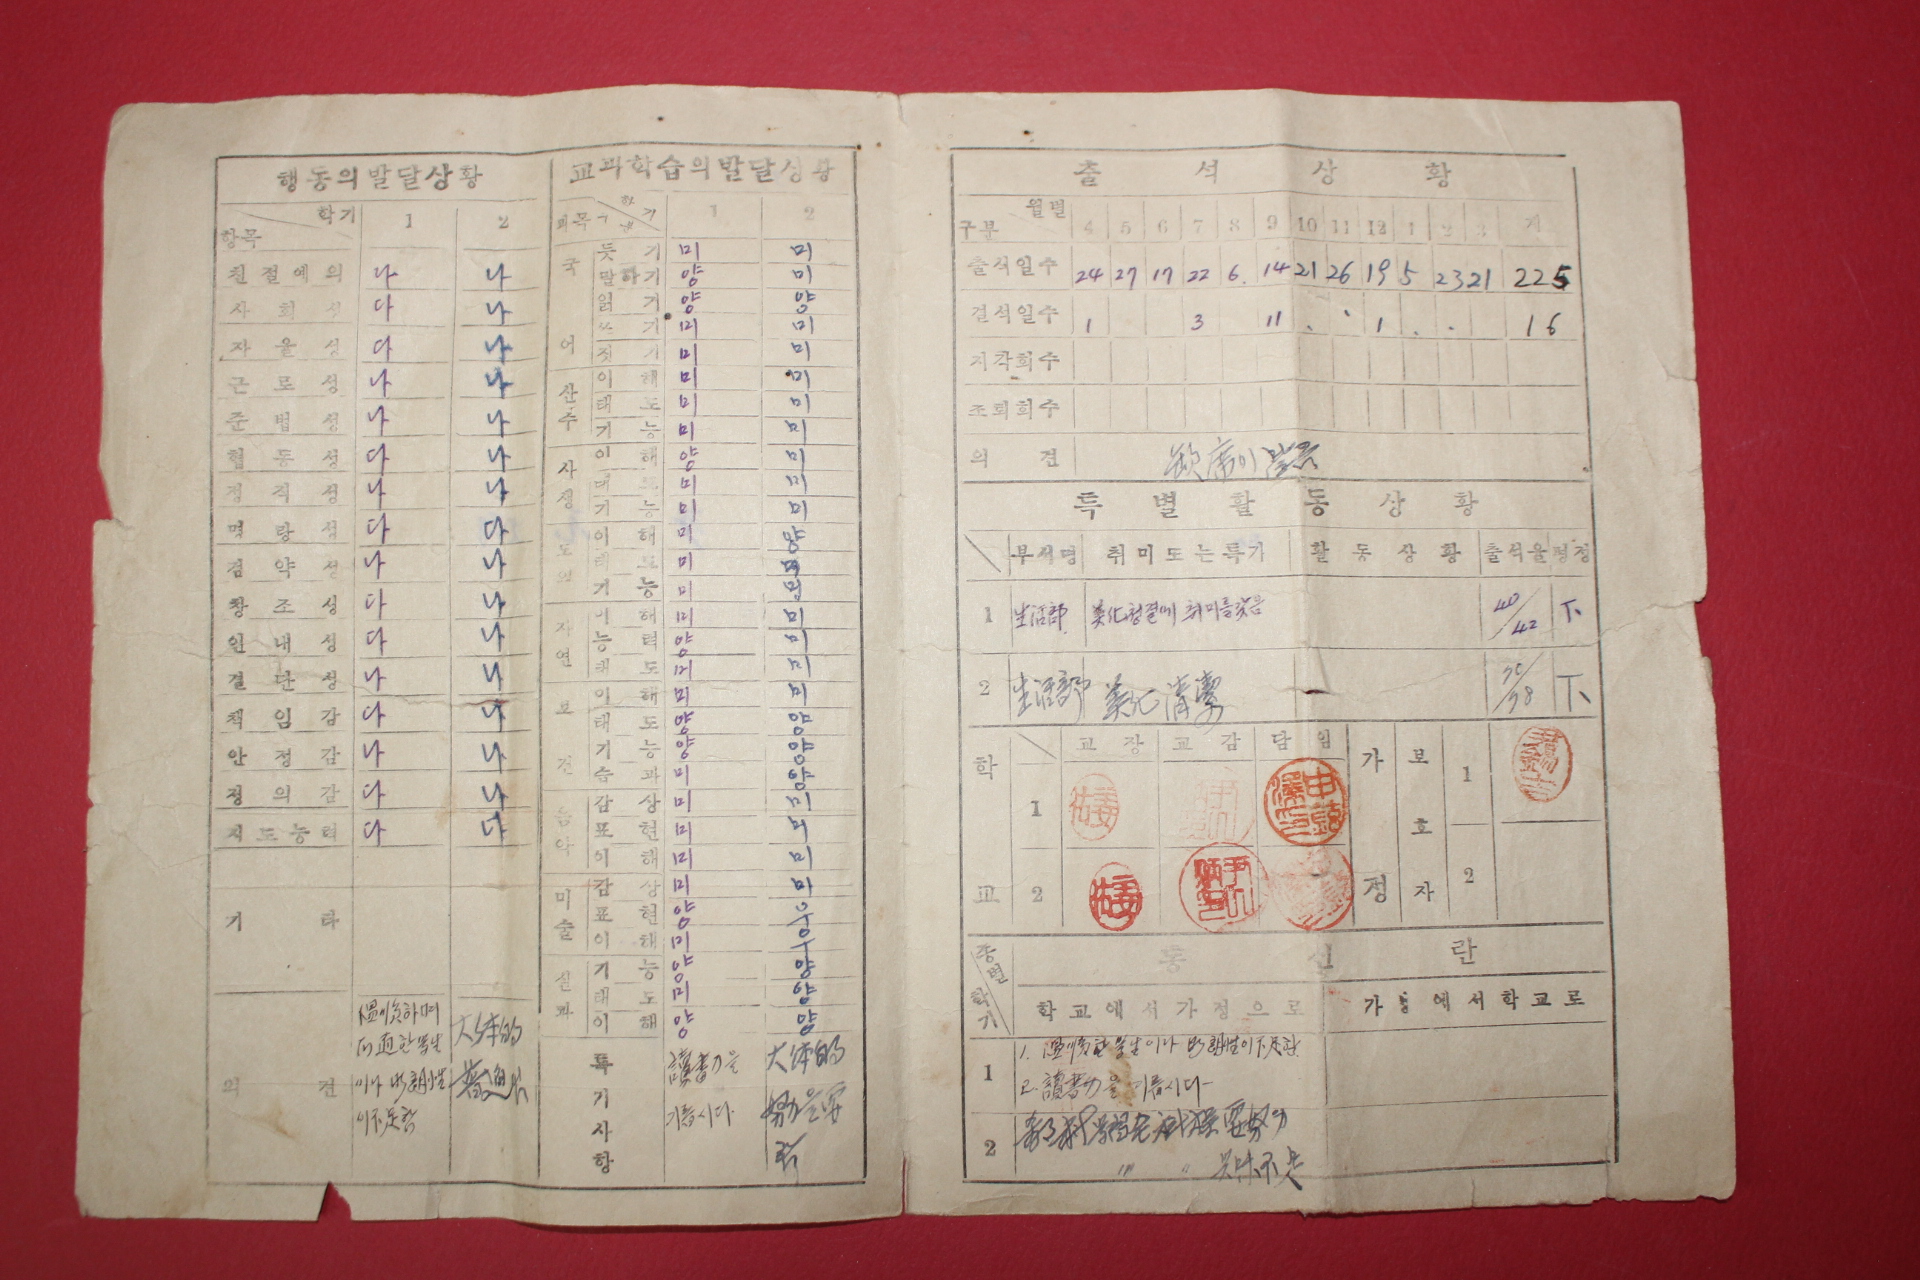 행동의발달상황
학기 1 2
항목
친절예의 나 나
사회성 다 나
자율성 다 나
근로성 나 나
준법성 나 나
협동성 다 나
정직성 나 나
명랑성 다 다
검약성 나 나
창조성 다 나
인내성 다 나
결단성 나 나
책임감 다 나
안정감 나 나
정의감 다 나
지도능력 다 나
기타
의견
大体的
교과학습의발달상황
과목 학기 1 2
국어
듯기 미 미
말하기 양 미
읽기 양 양
쓰기 미 미
짓기 미 미
산수
이해 미 미
태도 미 미
기능 미 미
사생
이해 양 미
태도 미 미
기능 미 미
도의
이해 미 양
태도 미
기능 미
자연
이해 미 미
능력 양 미
태도 미 미
보건
이해 미 미
태도 양 양
기능 양 양
습과 미 양
음악
감상 미 미
표현 미 미
이해 미 미
미술
감상 미 미
표현 양
이해 미
실과
기능 양 양
태도 미 양
이해 양 양
특기사항
讀書力을 기릅시다.
大体的 努力을要
출석상황
구분 월별 4 5 6 7 8 9 10 11 12 1 2 3 계
출석일수 24 27 17 22 6. 14 21 26 19 5 23 21 225
결석일수 1 3 11 1 16
지각회수
조퇴회수
의견
특별활동상황
부서명 취미도는특기 활동상황 출석율 평정
1 生活部 美化청결에 취미를갖음 40/42 下
2 生活部 美化 淸潔 下
학교
교장 교감 담임
1
2
가정
보호자
1
2
종별 학기
통신란
학교에서가정으로 가정에서학교로
1 1. 溫順한 학생이나
2. 讀書力을 기릅시다-
2